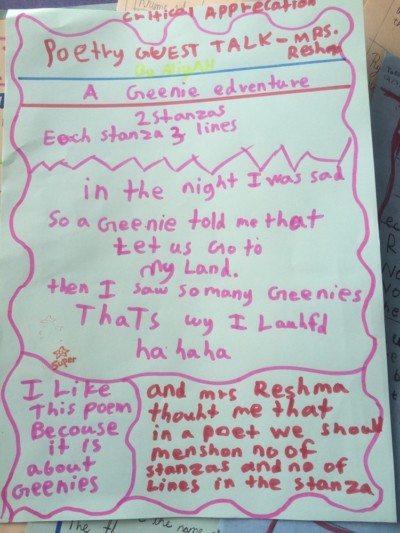 Critical Appreciation
Poetry GUEST TALK - MRS.
Reshma
A Geenie edventure
2 Stanzas
Each stanza 3 lines
in the night I was sad
So a Geenie told me that
Let us Go to
My Land.
then I saw so many Geenies
ThaTs wy I Lauhfd
ha haha
Super
I Like
This poem
Becouse
it Is
about
Geenies
and mrs Reshma
thouht me that
in a poet we should
menshon no of
stanzas and no of
Lines in the stanza